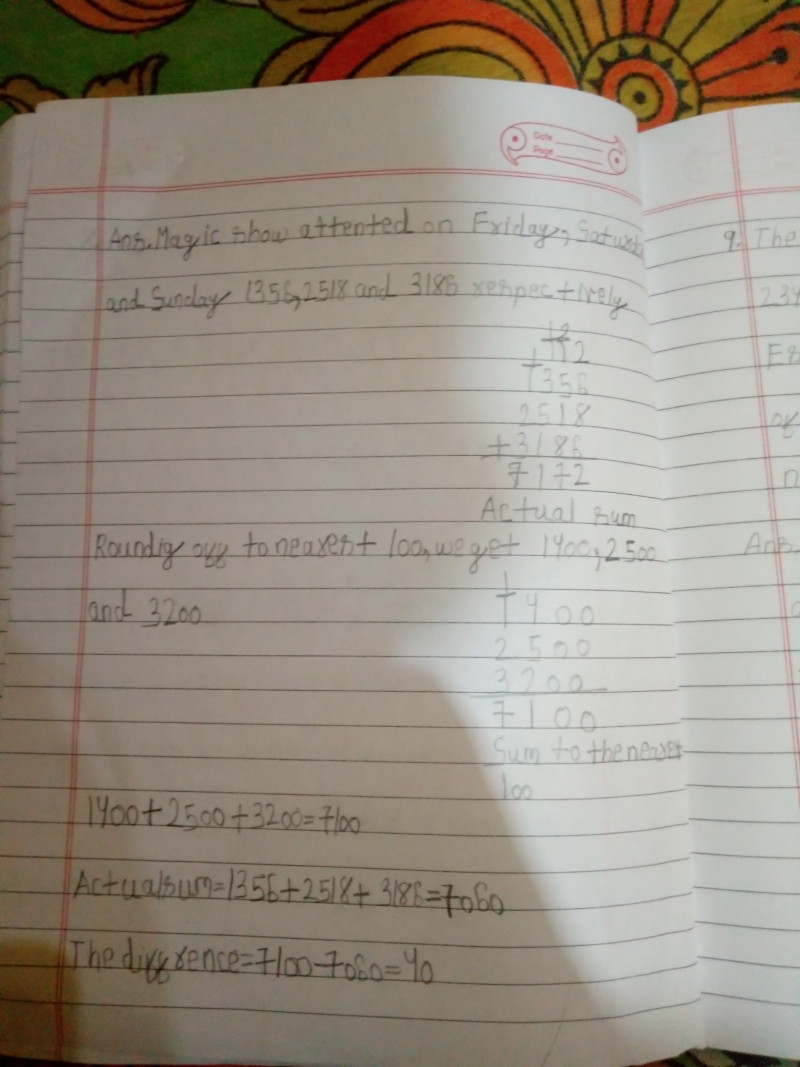 Date
Page
Ans. Magic show attented on Friday, Saturda
and Sunday 1356, 2518 and 3186 respectively
12
1356
2518
+3186
7172
Actual sum
Roundig off to nearest 100, we get 1400, 2500
and 3200
1
1400
2500
3200
7100
Sum to the nearest
100
1400+2500+3200=7100
Actual sum=1356+2518+3186=7060
The diffrence=7100-7060=40
9. The
234
of
n
Ans.